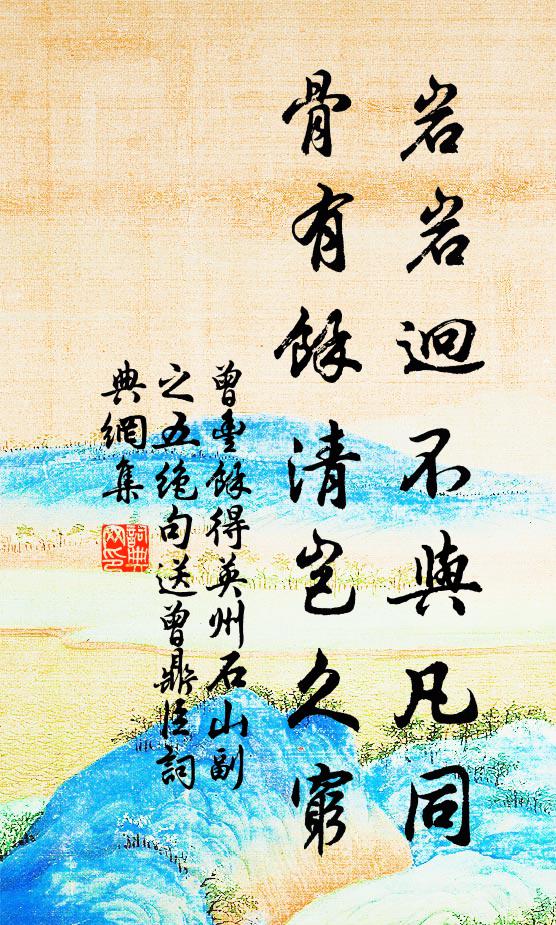 岩岩迥不與凡同
骨有餘清豈久窮
曾豐餘得英州石山副
之五絶句送曾鼎臣詞
典網集